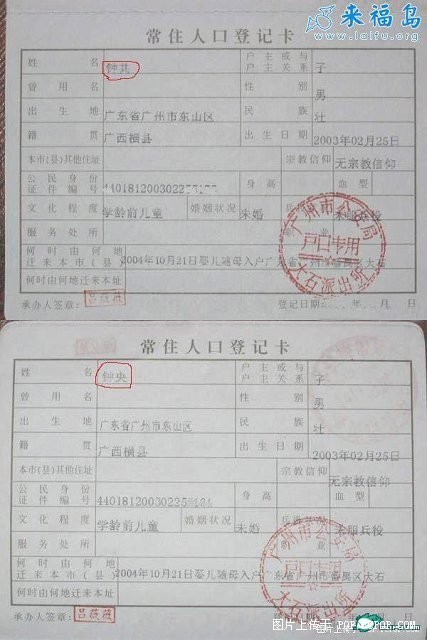 来福岛
www.laifu.org
常住人口登记卡
姓名 钟共 户主或与户主关系 子
曾用名 性别 男
出生地 广东省广州市东山区 民族 壮
籍贯 广西横县 出生日期 2003年02月25日
本市(县)其他住址 宗教信仰 无宗教信仰
公民身份证件编号 身高 血型
文化程度 学龄前儿童 婚姻状况 未婚
服务处所
何时由何地迁来本市(县) 2004年10月21日婴儿随母入户
何时由何地迁来本址
承办人签章: 吕薇薇 登记日期:
广州市公安局
户口专用
大石派出所
常住人口登记卡
姓名 钟央 户主或与户主关系 子
曾用名 性别 男
出生地 广东省广州市东山区 民族 壮
籍贯 广西横县 出生日期 2003年02月25日
本市(县)其他住址 宗教信仰 无宗教信仰
公民身份证件编号 身高 血型
文化程度 学龄前儿童 婚姻状况 未婚 未服兵役
服务处所
何时由何地迁来本市(县) 2004年10月21日婴儿随母入户广东省广州市番禺区大石
何时由何地迁来本址
承办人签章: 吕薇薇
广州市公安局
户口专用
图片上传于